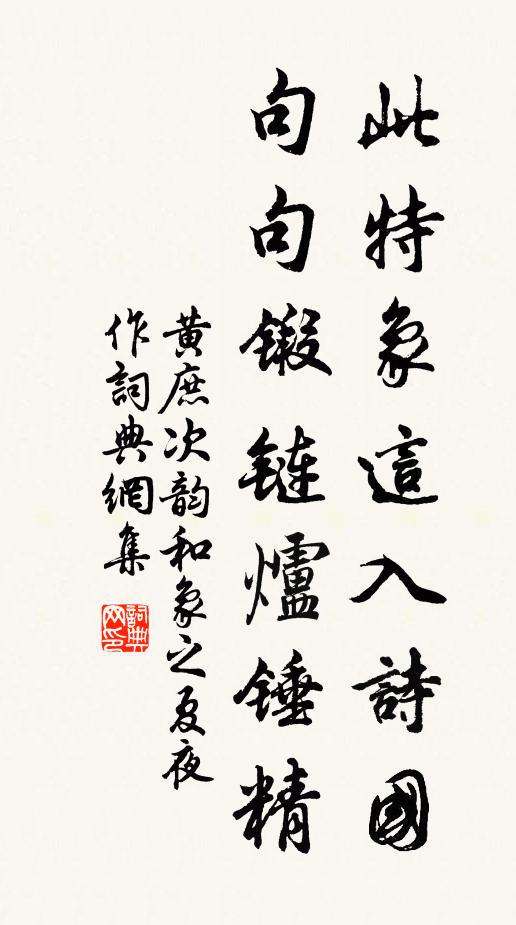 此特象這入詩國
句句鍛鏈爐錘精
黃庶次韵和象之夏夜
作詞典網集
詞典
网印